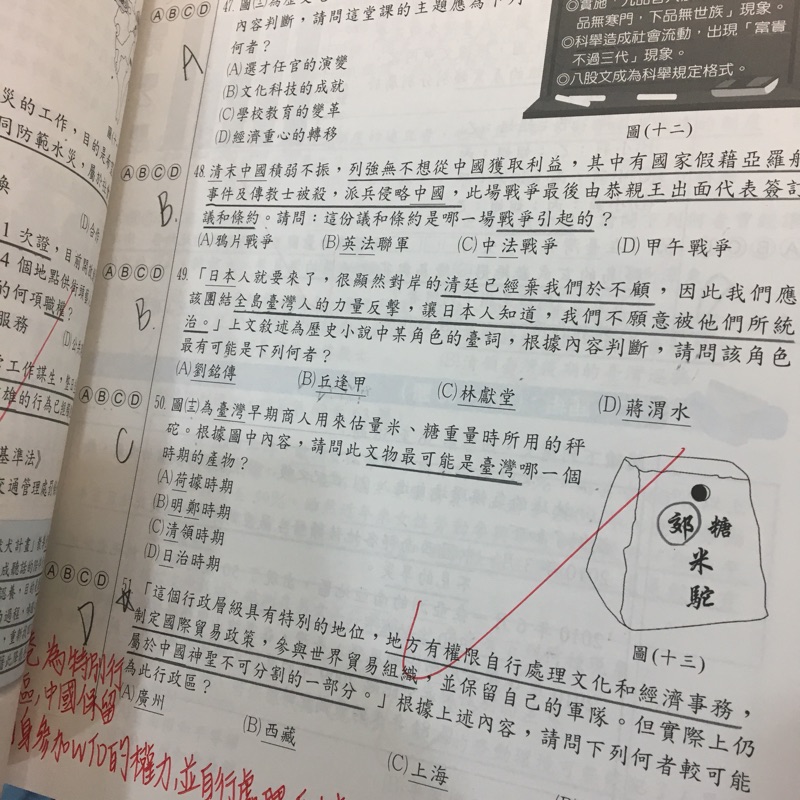 47. 圖(三)為歷史
內容判斷，請問這堂課的主題應為下列
何者？
(A)選才任官的演變
(B)文化科技的成就
(C)學校教育的變革
(D)經濟重心的轉移
品無寒門，下品無世族」現象。
◎科舉造成社會流動，出現「富貴
不過三代」現象。
◎八股文成為科舉規定格式。
圖(十二)
ⒶⒷⒸⒹ
A
ⒶⒷⒸⒹ
B.
48. 清末中國積弱不振，列強無不想從中國獲取利益，其中有國家假藉亞羅船
事件及傳教士被殺，派兵侵略中國，此場戰爭最後由恭親王出面代表簽訂
議和條約。請問：這份議和條約是哪一場戰爭引起的？
(A)鴉片戰爭 (B)英法聯軍 (C)中法戰爭 (D)甲午戰爭
ⒶⒷⒸⒹ
B.
49. 「日本人就要來了，很顯然對岸的清廷已經棄我們於不顧，因此我們應
該團結全島臺灣人的力量反擊，讓日本人知道，我們不願意被他們所統
治。」上文敘述為歷史小說中某角色的臺詞，根據內容判斷，請問該角色
最有可能是下列何者？
(A)劉銘傳 (B)丘逢甲 (C)林獻堂 (D)蔣渭水
ⒶⒷⒸⒹ
C
50. 圖(十三)為臺灣早期商人用來估量米、糖重量時所用的秤
砣。根據圖中內容，請問此文物最可能是臺灣哪一個
時期的產物？
(A)荷據時期
(B)明鄭時期
(C)清領時期
(D)日治時期
郊
糖
米
駝
圖(十三)
ⒶⒷⒸⒹ
D
51. 「這個行政層級具有特別的地位，地方有權限自行處理文化和經濟事務，
制定國際貿易政策，參與世界貿易組織，並保留自己的軍隊。但實際上仍
屬於中國神聖不可分割的一部分。」根據上述內容，請問下列何者較可能
為此行政區？
(A)廣州 (B)西藏 (C)上海
為特別行
區，中國保留
身參加WTO的權力，並自行處理
災的工作，目的是
同防範水災，屬於
換
1 次證，目前開放
4 個地點供街頭
的何項職權？
服務
工作謀生，
雄的行為已
基準法》